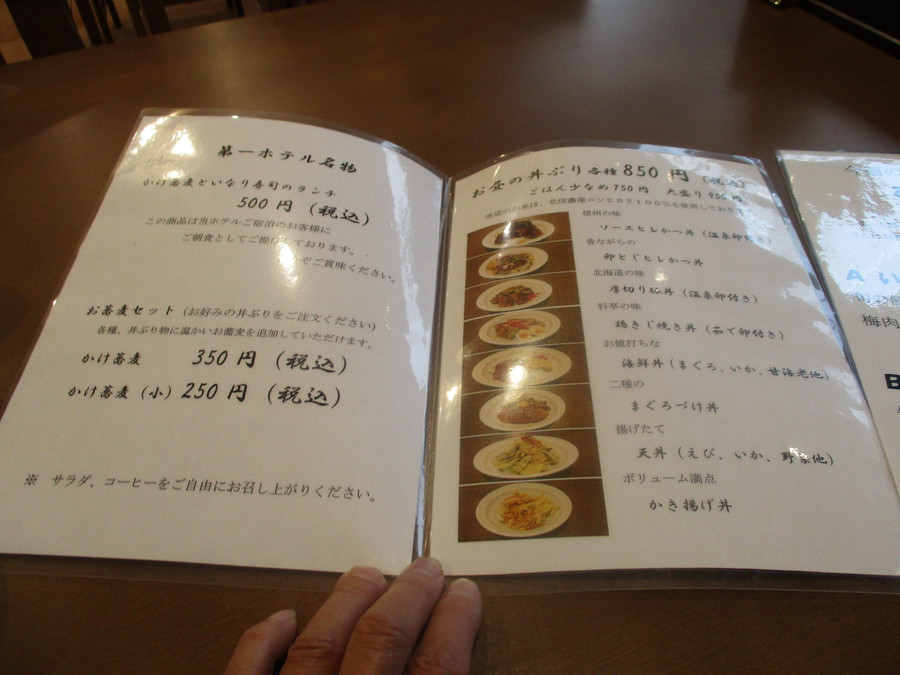 第一ホテル名物
かけ蕎麦といなり寿司のランチ
500 円 (税込)
この商品は当ホテルご宿泊のお客様に
ご朝食としてご提供しております。
ぞご賞味ください。
お蕎麦セット (お好みの丼ぶりをご注文ください)
各種、丼ぶり物に温かいお蕎麦を追加していただけます。
かけ蕎麦 350 円 (税込)
かけ蕎麦 (小) 250 円 (税込)
※ サラダ、コーヒーをご自由にお召し上がりください。
お昼の丼ぶり各種 850 円 (税込)
ごはん少なめ 750 円 大盛り 950 円
当店のお米は、北信濃産コシヒカリ100%を使用しており
信州の味
ソースヒレかつ丼 (温泉卵付き)
昔ながらの
卵とじヒレかつ丼
北海道の味
厚切り豚丼 (温泉卵付き)
料亭の味
鶏きじ焼き丼 (茹で卵付き)
お値打ちな
海鮮丼 (まぐろ、いか、甘海老他)
二種の
まぐろづけ丼
揚げたて
天丼 (えび、いか、野菜他)
ボリューム満点
かき揚げ丼
A い
梅肉
B